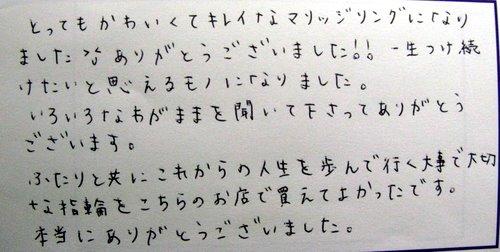 とってもかわいくてキレイなマリッジリングになり
ました^^ ありがとうございました!! 一生つけ続
けたいと思えるモノになりました。
いろいろなわがままを聞いて下さってありがとう
ございます。
ふたりと共にこれからの人生を歩んで行く大事で大切
な指輪をこちらのお店で買えてよかったです。
本当にありがとうございました。